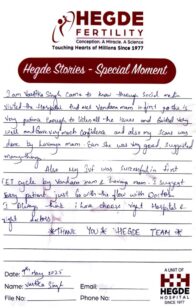 HEGDE
FERTILITY
Conception: A Miracle. A Science
Touching Hearts of Millions Since 1977
Hegde Stories - Special Moment
I am Vartika Singh came to know through Social media
visited the Hospital and met Vandana mam in first go she is
very patience enough to listen all the issues and Guided very
well and Gave very much confidence and also my Scans was
done by Lavanya mam Even she was very good suggested
many things.
Also My IVF was successful in first
ET cycle by Vandana mam & Lavanya mam. I suggest
every patient just Go with the flow with Doctor
& Always think I have choose right Hospital &
right doctors
* THANK YOU * HEGDE TEAM *
Date: 9th May 2025
Name: Vartika Singh
Email:
File No:
Phone No:
A UNIT OF
HEGDE
HOSPITAL
Since 1977